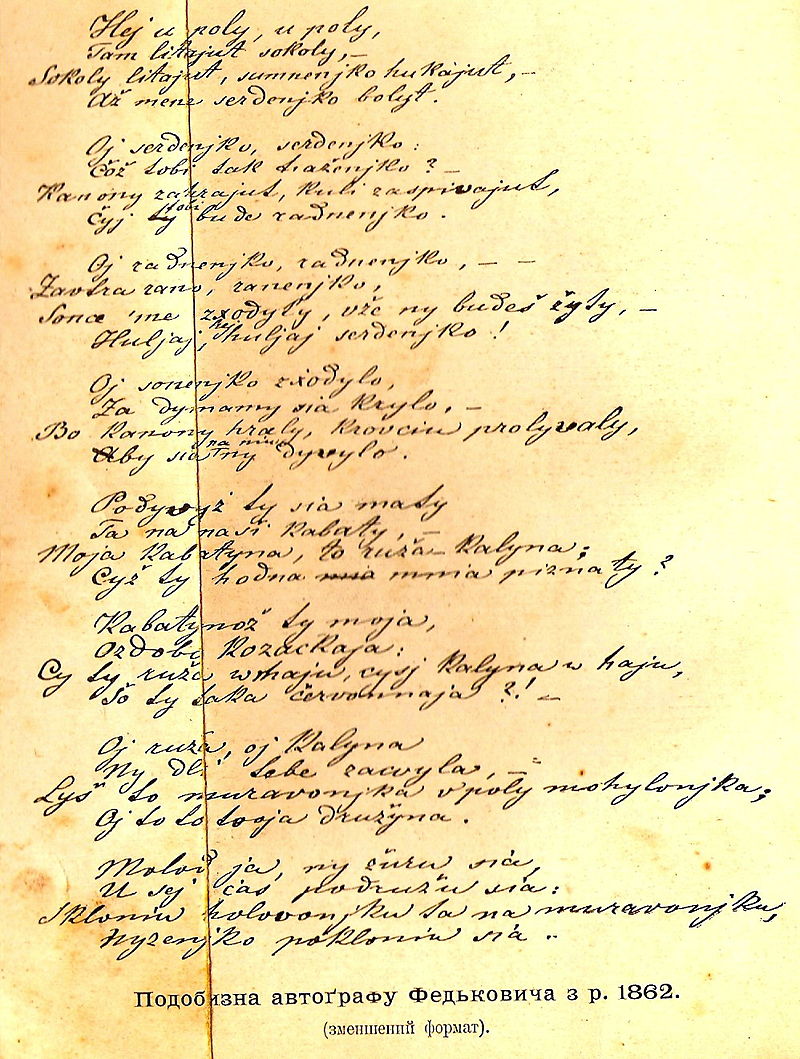 Hej u poly, u poly,
Tam litajut sokoly,—
Sokoly litajut, sumnenjko hukajut,—
Až mene serdenjko bolyt.
Oj serdenjko, serdenjko:
Čož tobi tak traženjko?—
Kanony zahrajut, kuli zaspivajut,
tobi
Čyj ty bude radnenjko.
Oj radnenjko, radnenjko,— —
Zavtra rano, ranenjko,
Sonce 'me zxodyty, vže ny budeš žyty,—
hej
Huljaj, huljaj serdenjko!
Oj sonenjko zxodylo,
Za dymamy sia krylo,—
Bo kanony hraly, krovciu prolyvaly,
na niu
Aby sia ny dyvylo.
Podyvyż ty sia maty
Ta na naši kabaty,—
Moja kabatyna, to ruža-kalyna;
Cyž ty hodna mnia piznaty?
Kabatynož ty moja,
Ozdobo kozackaja:
Cy ty ruža w maju, cysj kalyna w haju,
Šo ty taka červonnaja?!—
Oj ruža, oj kalyna
Ny dlá tebe zacvyla,—
Lyš to muravonjka v poly mohylonjka;
Oj to to tvoja družyna.
Molod ja, ny žuru sia,
U sej čas podružu sia:
Skloniu holovonjku ta na muravonjku,
Nyzenjko pokloniu sia..
Подобизна автоґрафу Федьковича з р. 1862.
(зменшений формат).